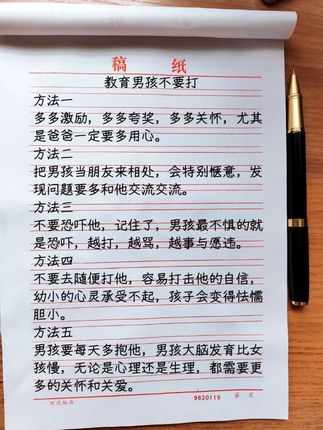 稿 纸
教育男孩不要打
方法一
多多激励，多多夸奖，多多关怀，尤其
是爸爸一定要多用心。
方法二
把男孩当朋友来相处，会特别惬意，发
现问题要多和他交流交流。
方法三
不要恐吓他，记住了，男孩最不惧的就
是恐吓，越打，越骂，越事与愿违。
方法四
不要去随便打他，容易打击他的自信，
幼小的心灵承受不起，孩子会变得怯懦
胆小。
方法五
男孩要每天多抱他，男孩大脑发育比女
孩慢，无论是心理还是生理，都需要更
多的关怀和关爱。
9830119 第 页